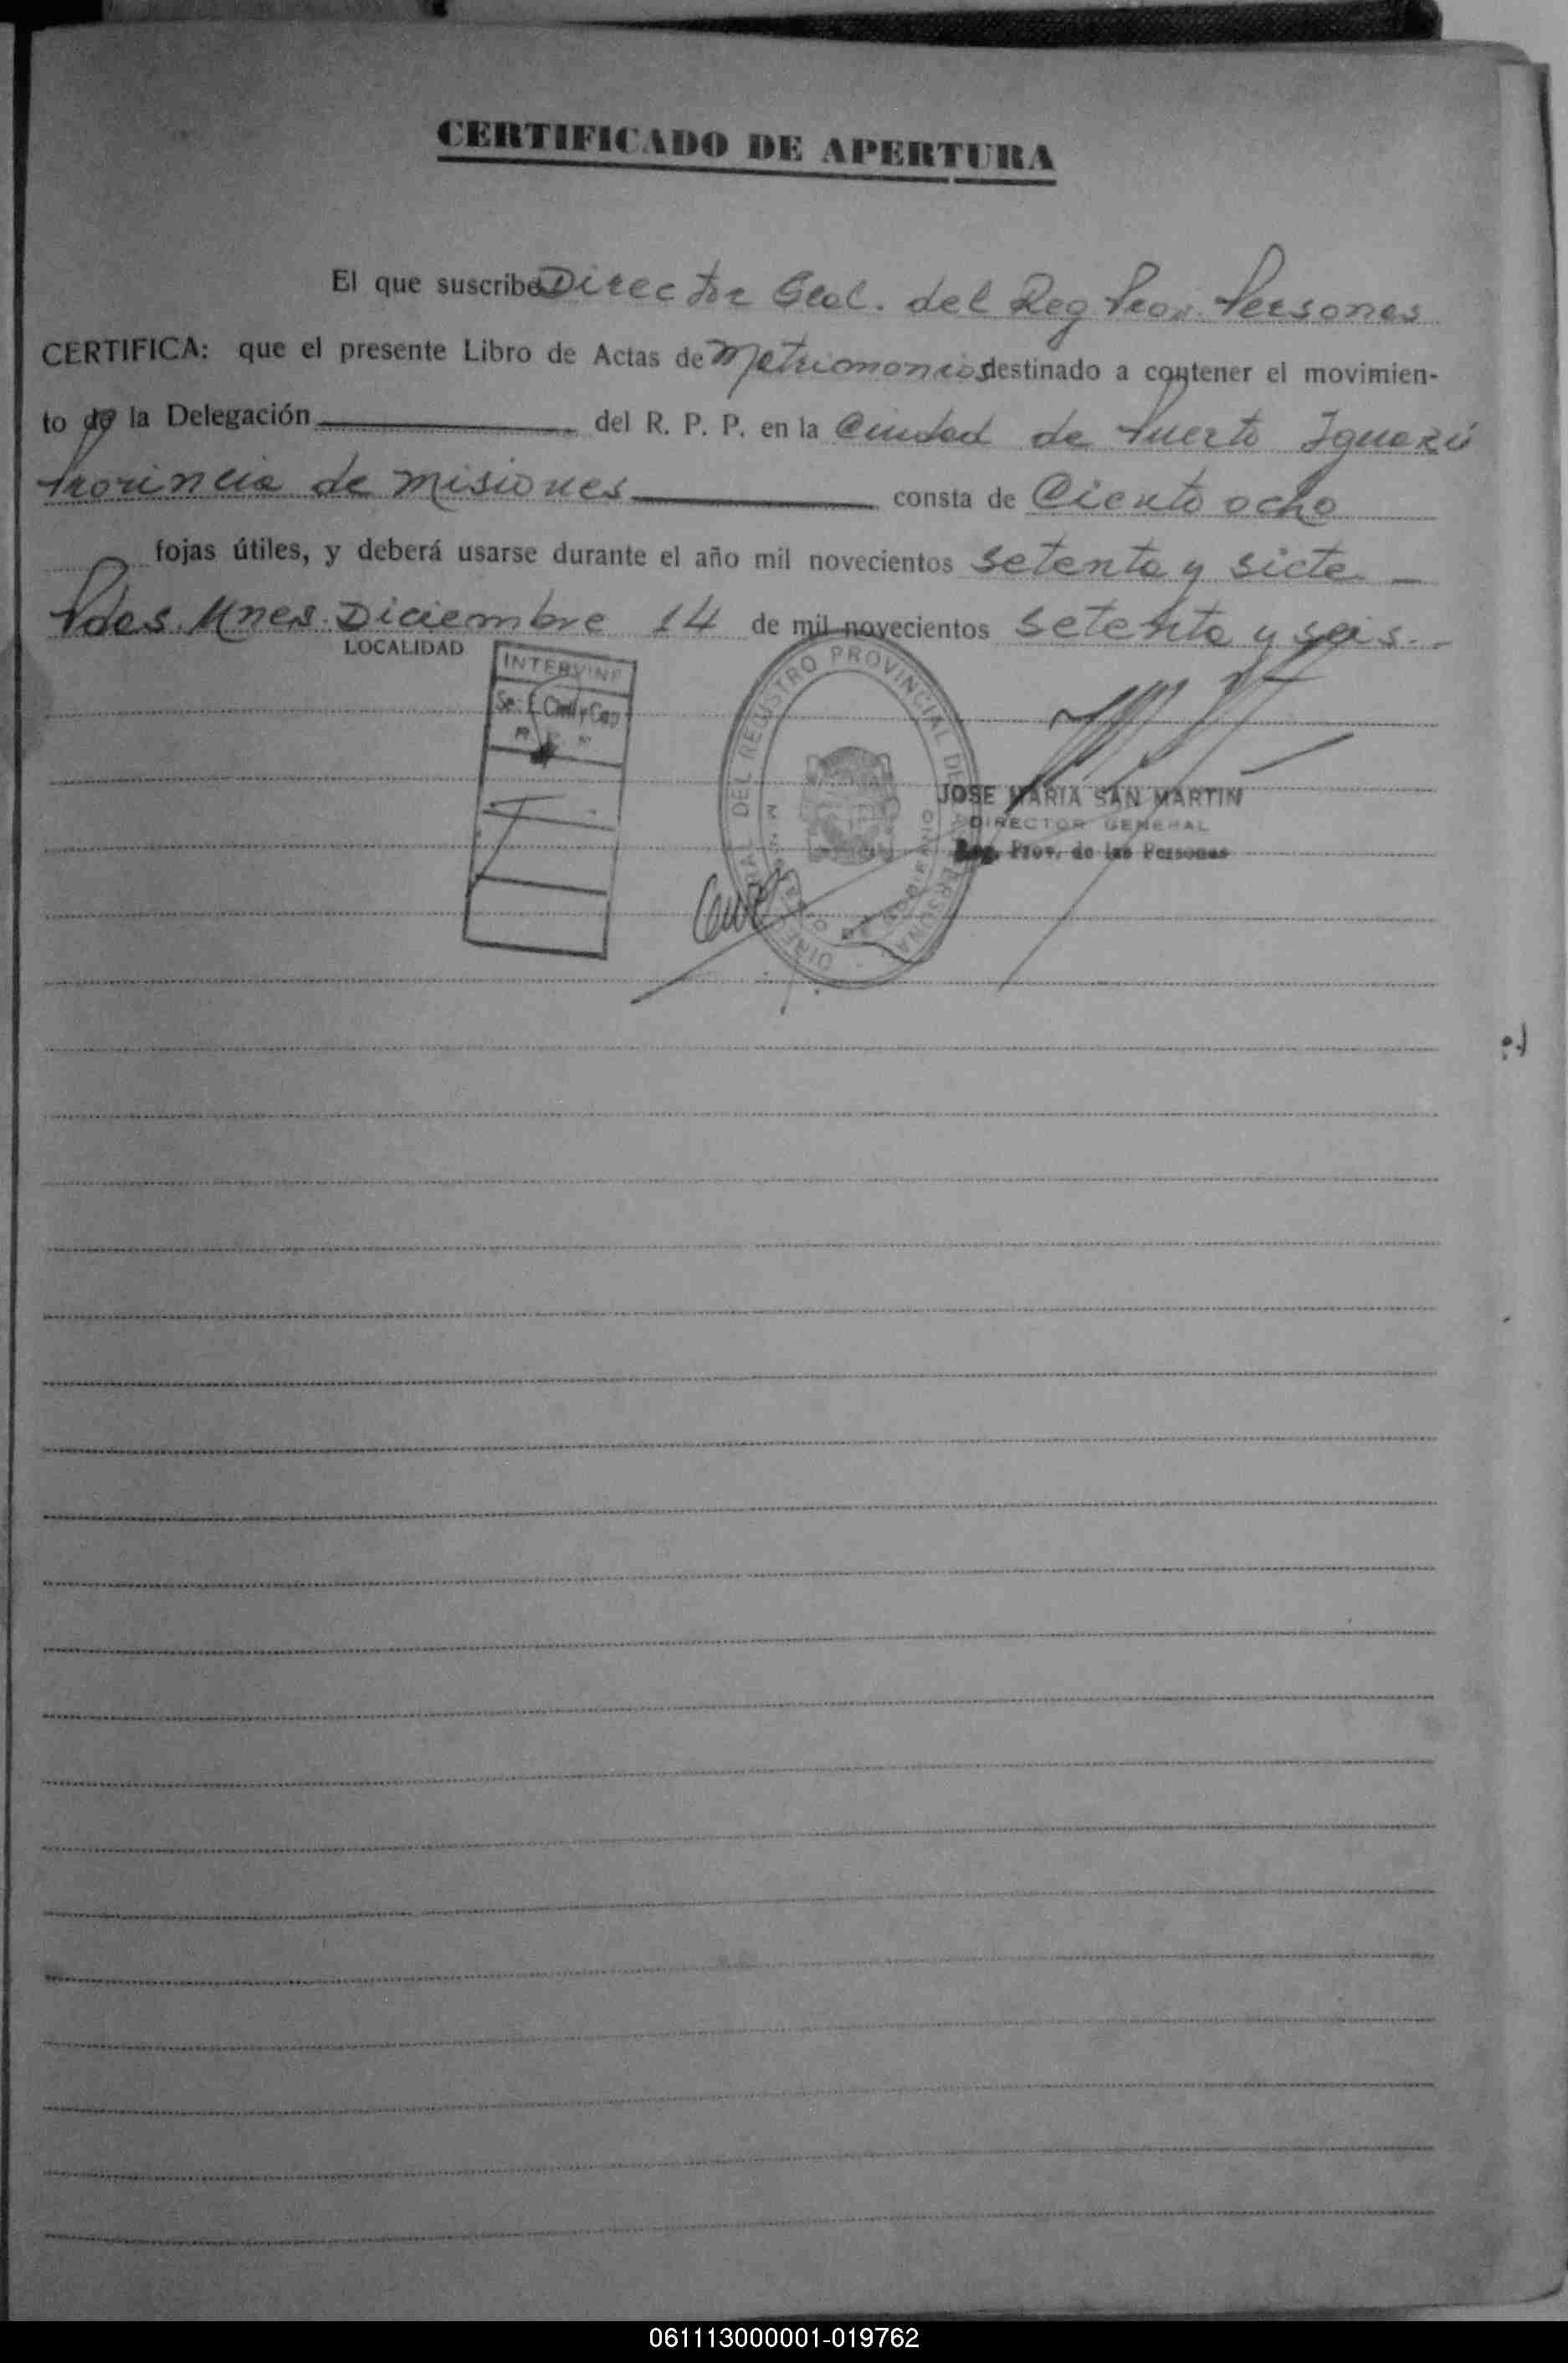 CERTIFICADO DE APERTURA
El que suscribe Director Gral. del Reg Prov. Personas
CERTIFICA: que el presente Libro de Actas de Matrimonios destinado a contener el movimien-
to de la Delegación del R. P. P. en la Ciudad de Puerto Iguazú
Provincia de Misiones consta de Ciento ocho
fojas útiles, y deberá usarse durante el año mil novecientos setenta y siete
Pdas. Mnes. Diciembre 14 de mil novecientos setenta y seis.
LOCALIDAD
INTERVINE
DEL REGISTRO PROVINCIAL DE
JOSE MARIA SAN MARTIN
DIRECTOR GENERAL
Reg. Prov. de las Personas
061113000001-019762